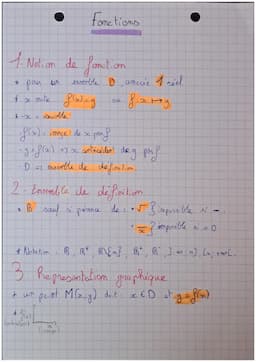 Fonctions
1. Notion de fonction
* pour un ensemble D, associe 1 réel
* x note f(x)=y ou f: x↦y
- x = variable
f(x) = image de x par f
- y = f(x) → x antécédent de y par f
- D = ensemble de définition
2. Ensemble de définition
* R sauf
* √ impossible si -
/x impossible si = 0
* Notation : R, R*, R
3. Représentation graphique
* un point M(x;y) x ∈ D et y = f(x)
* f(x)
x